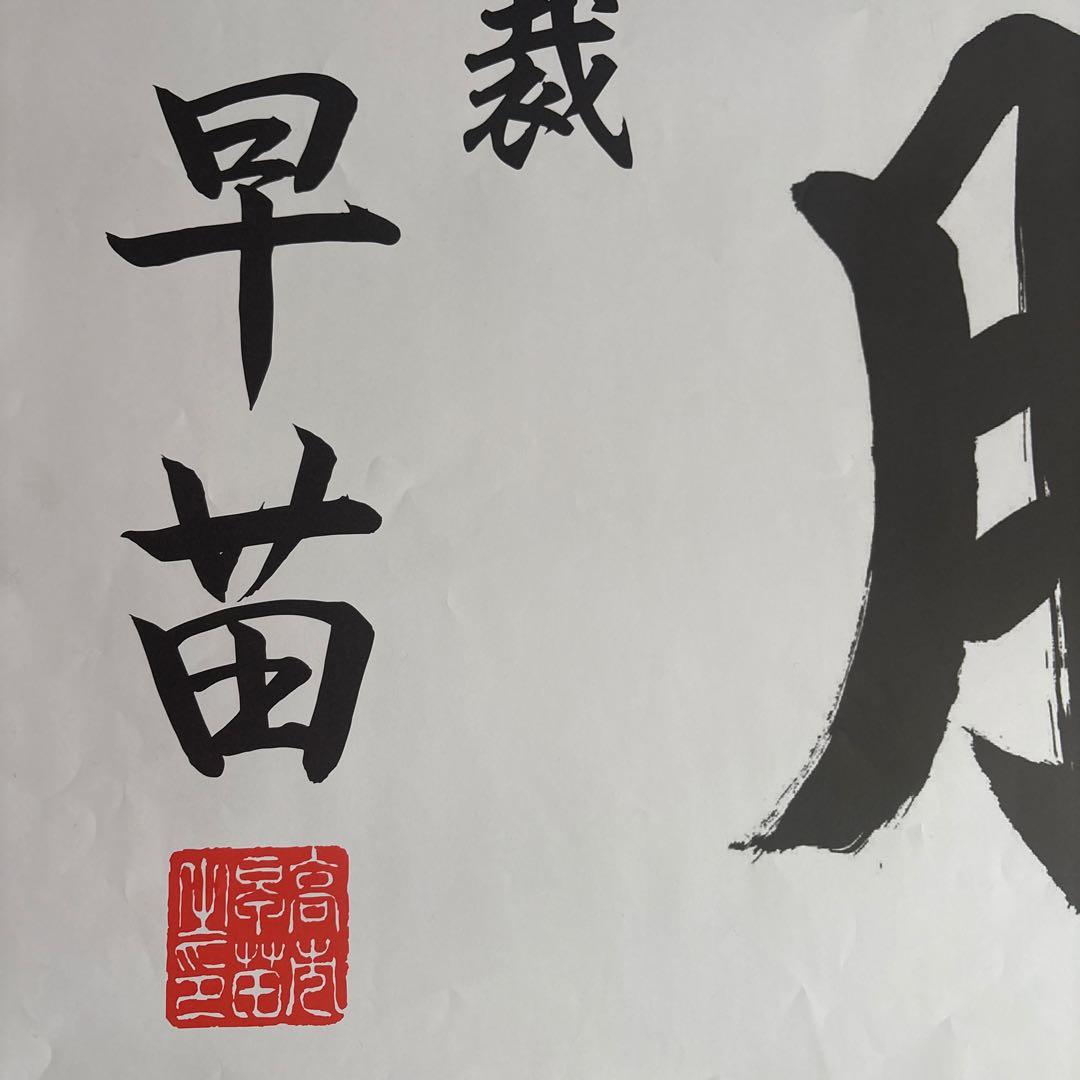 裁
早苗
高市
早苗
之印